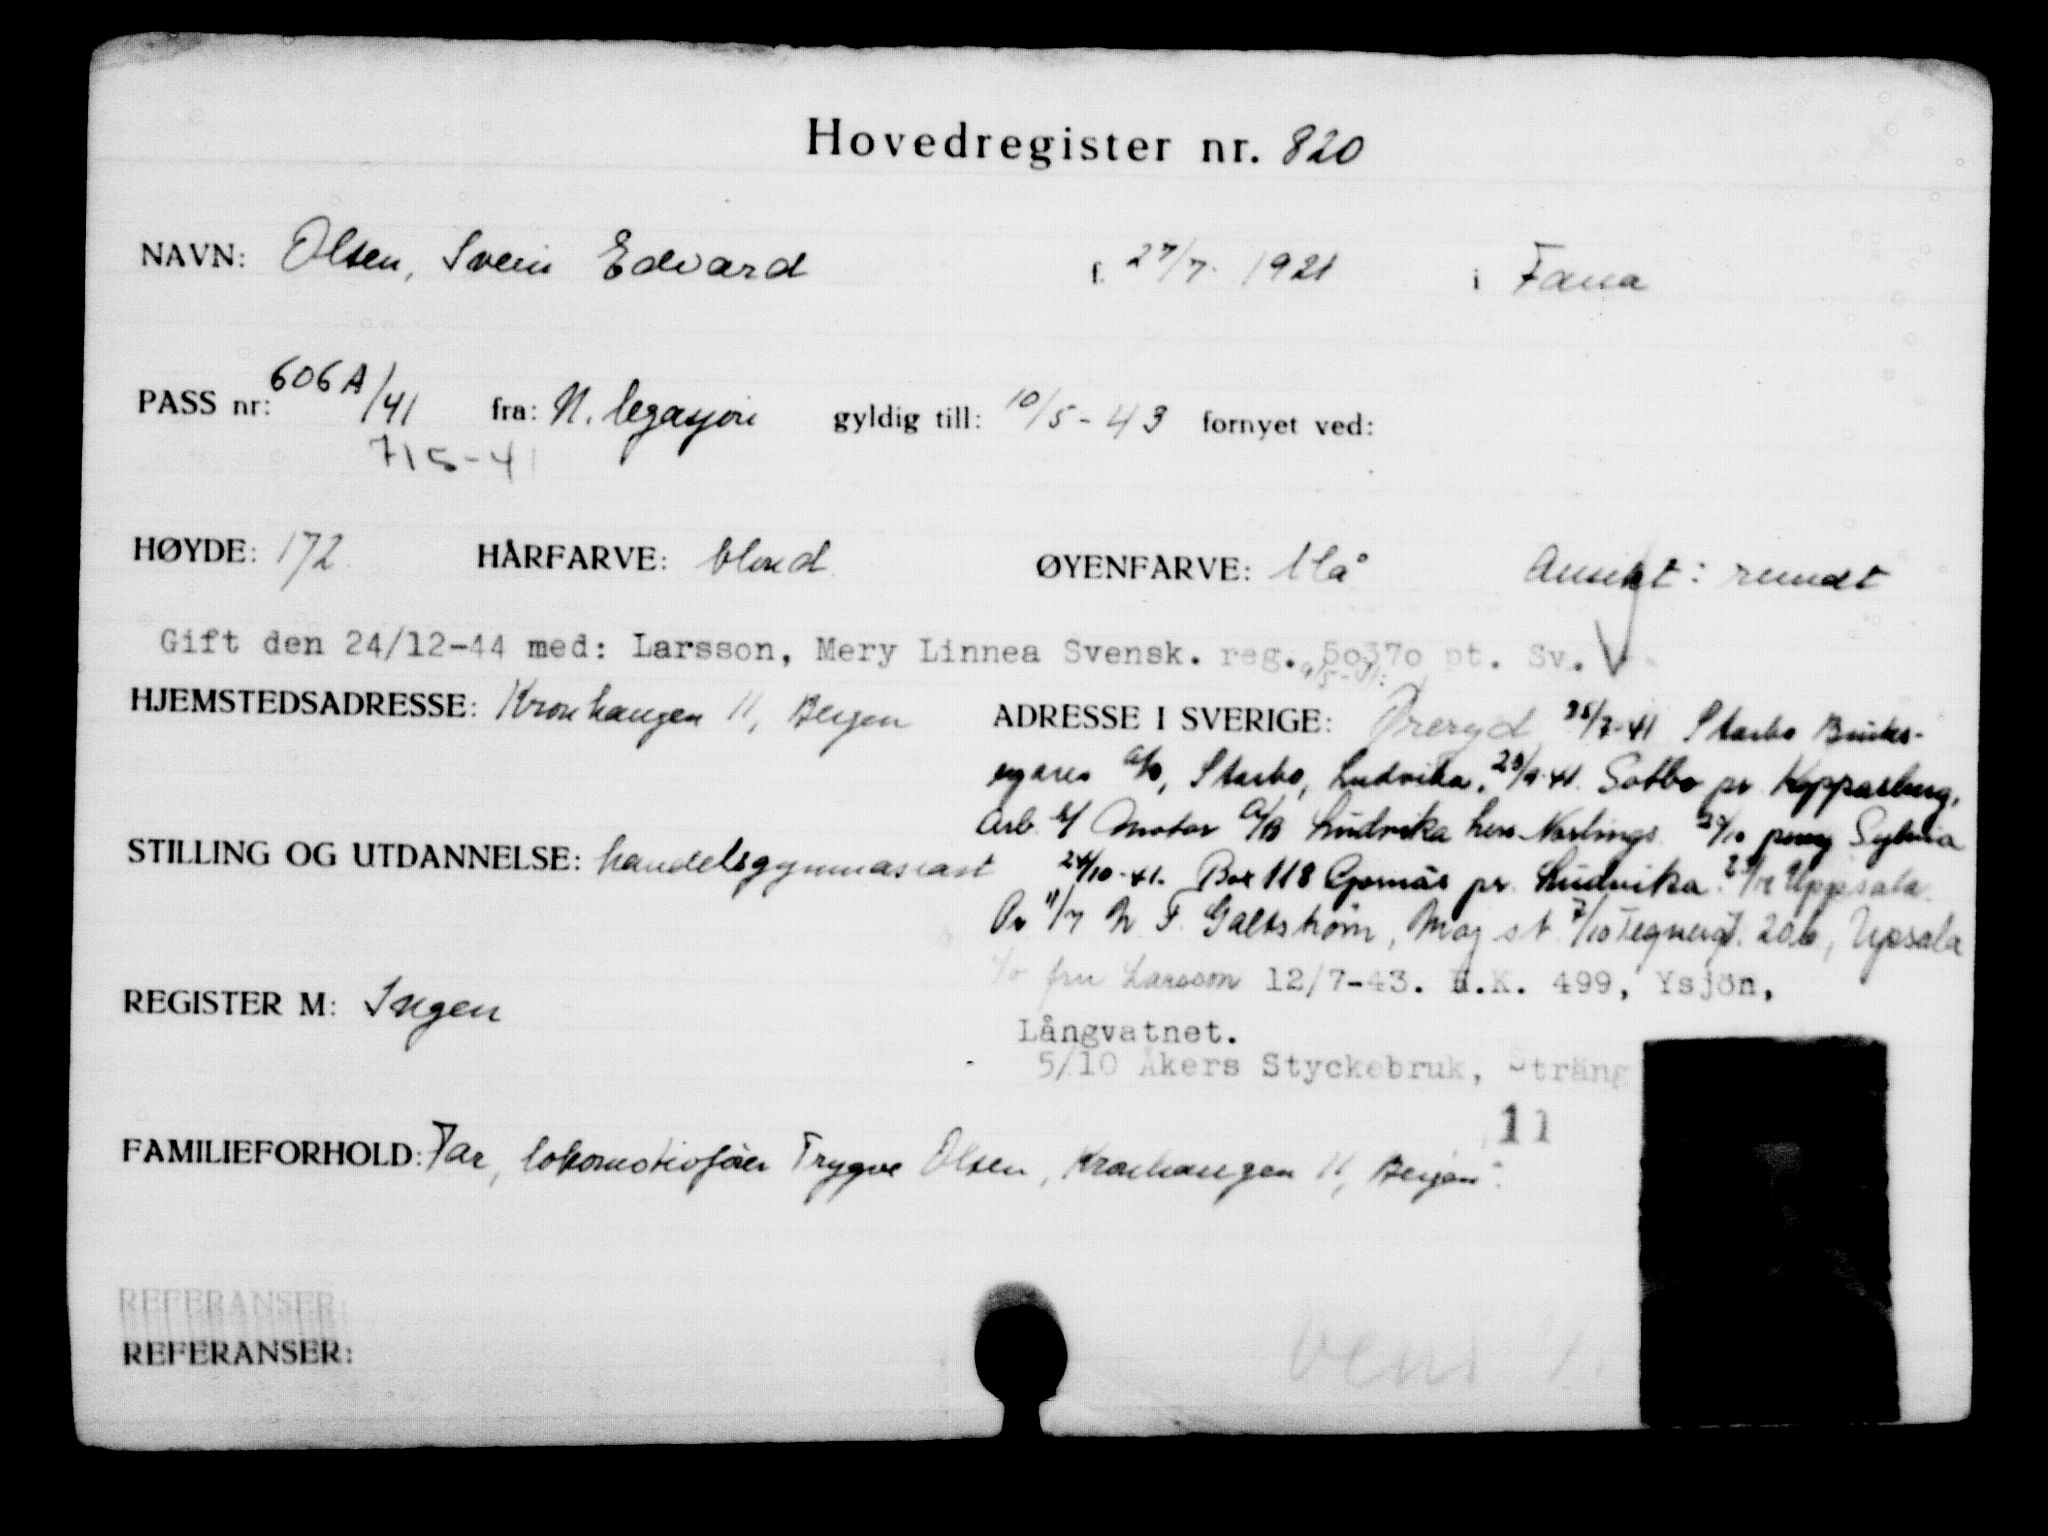 Hovedregister nr. 820
NAVN: Olsen, Svein Edvard f. 27/7. 1921 i Fana
PASS nr: 606A/41 fra: N. legasjon gyldig till: 10/5-43 fornyet ved:
715-41
HØYDE: 172. HÅRFARVE: blond. ØYENFARVE: blå Ansikt: rundt
Gift den 24/12-44 med: Larsson, Mery Linnea Svensk. reg. 50370 pt. Sv.
HJEMSTEDSADRESSE: Kronhaugen 11, Bergen
ADRESSE I SVERIGE: Öreryd 41 Starbo Bruks-
egares Starbo, Ludvika. 41. Sotbo pr. Kopparberg,
Arb. Motor A/B Ludvika hos Norlings 10 Sylvia
24/10-41. Box 118 Gonäs pr. Ludvika. Uppsala.
11/7 F. Galtström, 7/10 Tegnergt. 20b, Upsala
c/o fru Larsson 12/7-43. H.K. 499, Ysjön,
Långvatnet.
5/10 Åkers Styckebruk, Sträng
STILLING OG UTDANNELSE: handelsgymnasiast
REGISTER M: Ingen
11
FAMILIEFORHOLD: Far, lokomotivfører Trygve Olsen, Kronhaugen 11, Bergen.
REFERANSER:
REFERANSER: